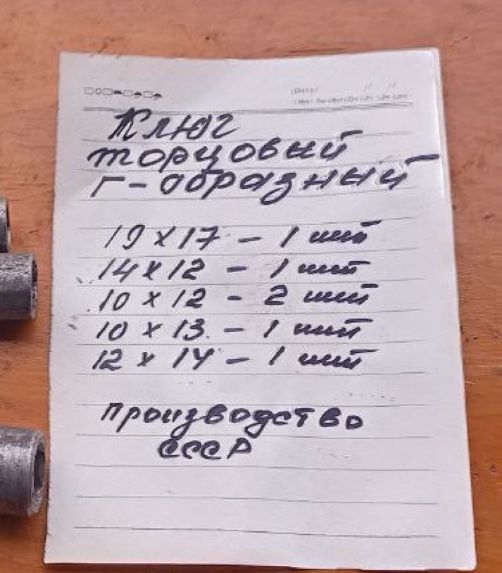 Ключ
торцовый
Г-образный
19 х 17 - 1 шт
14 х 12 - 1 шт
10 х 12 - 2 шт
10 х 13 - 1 шт
12 х 14 - 1 шт
производство
СССР